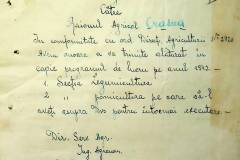 Către
Raionul Agricol Crasna
In conformitate cu ord. Direcț. Agriculturii
avem onoare a va trimite alăturat in
copie programul de lucru pe anul 1942
1 Secția Legumicultura
2 " pomicultura pe care să-l
aveți asupra Dvs pentru intocmai executare.
Dir. Serv. Agr.
Ing. Agronom.